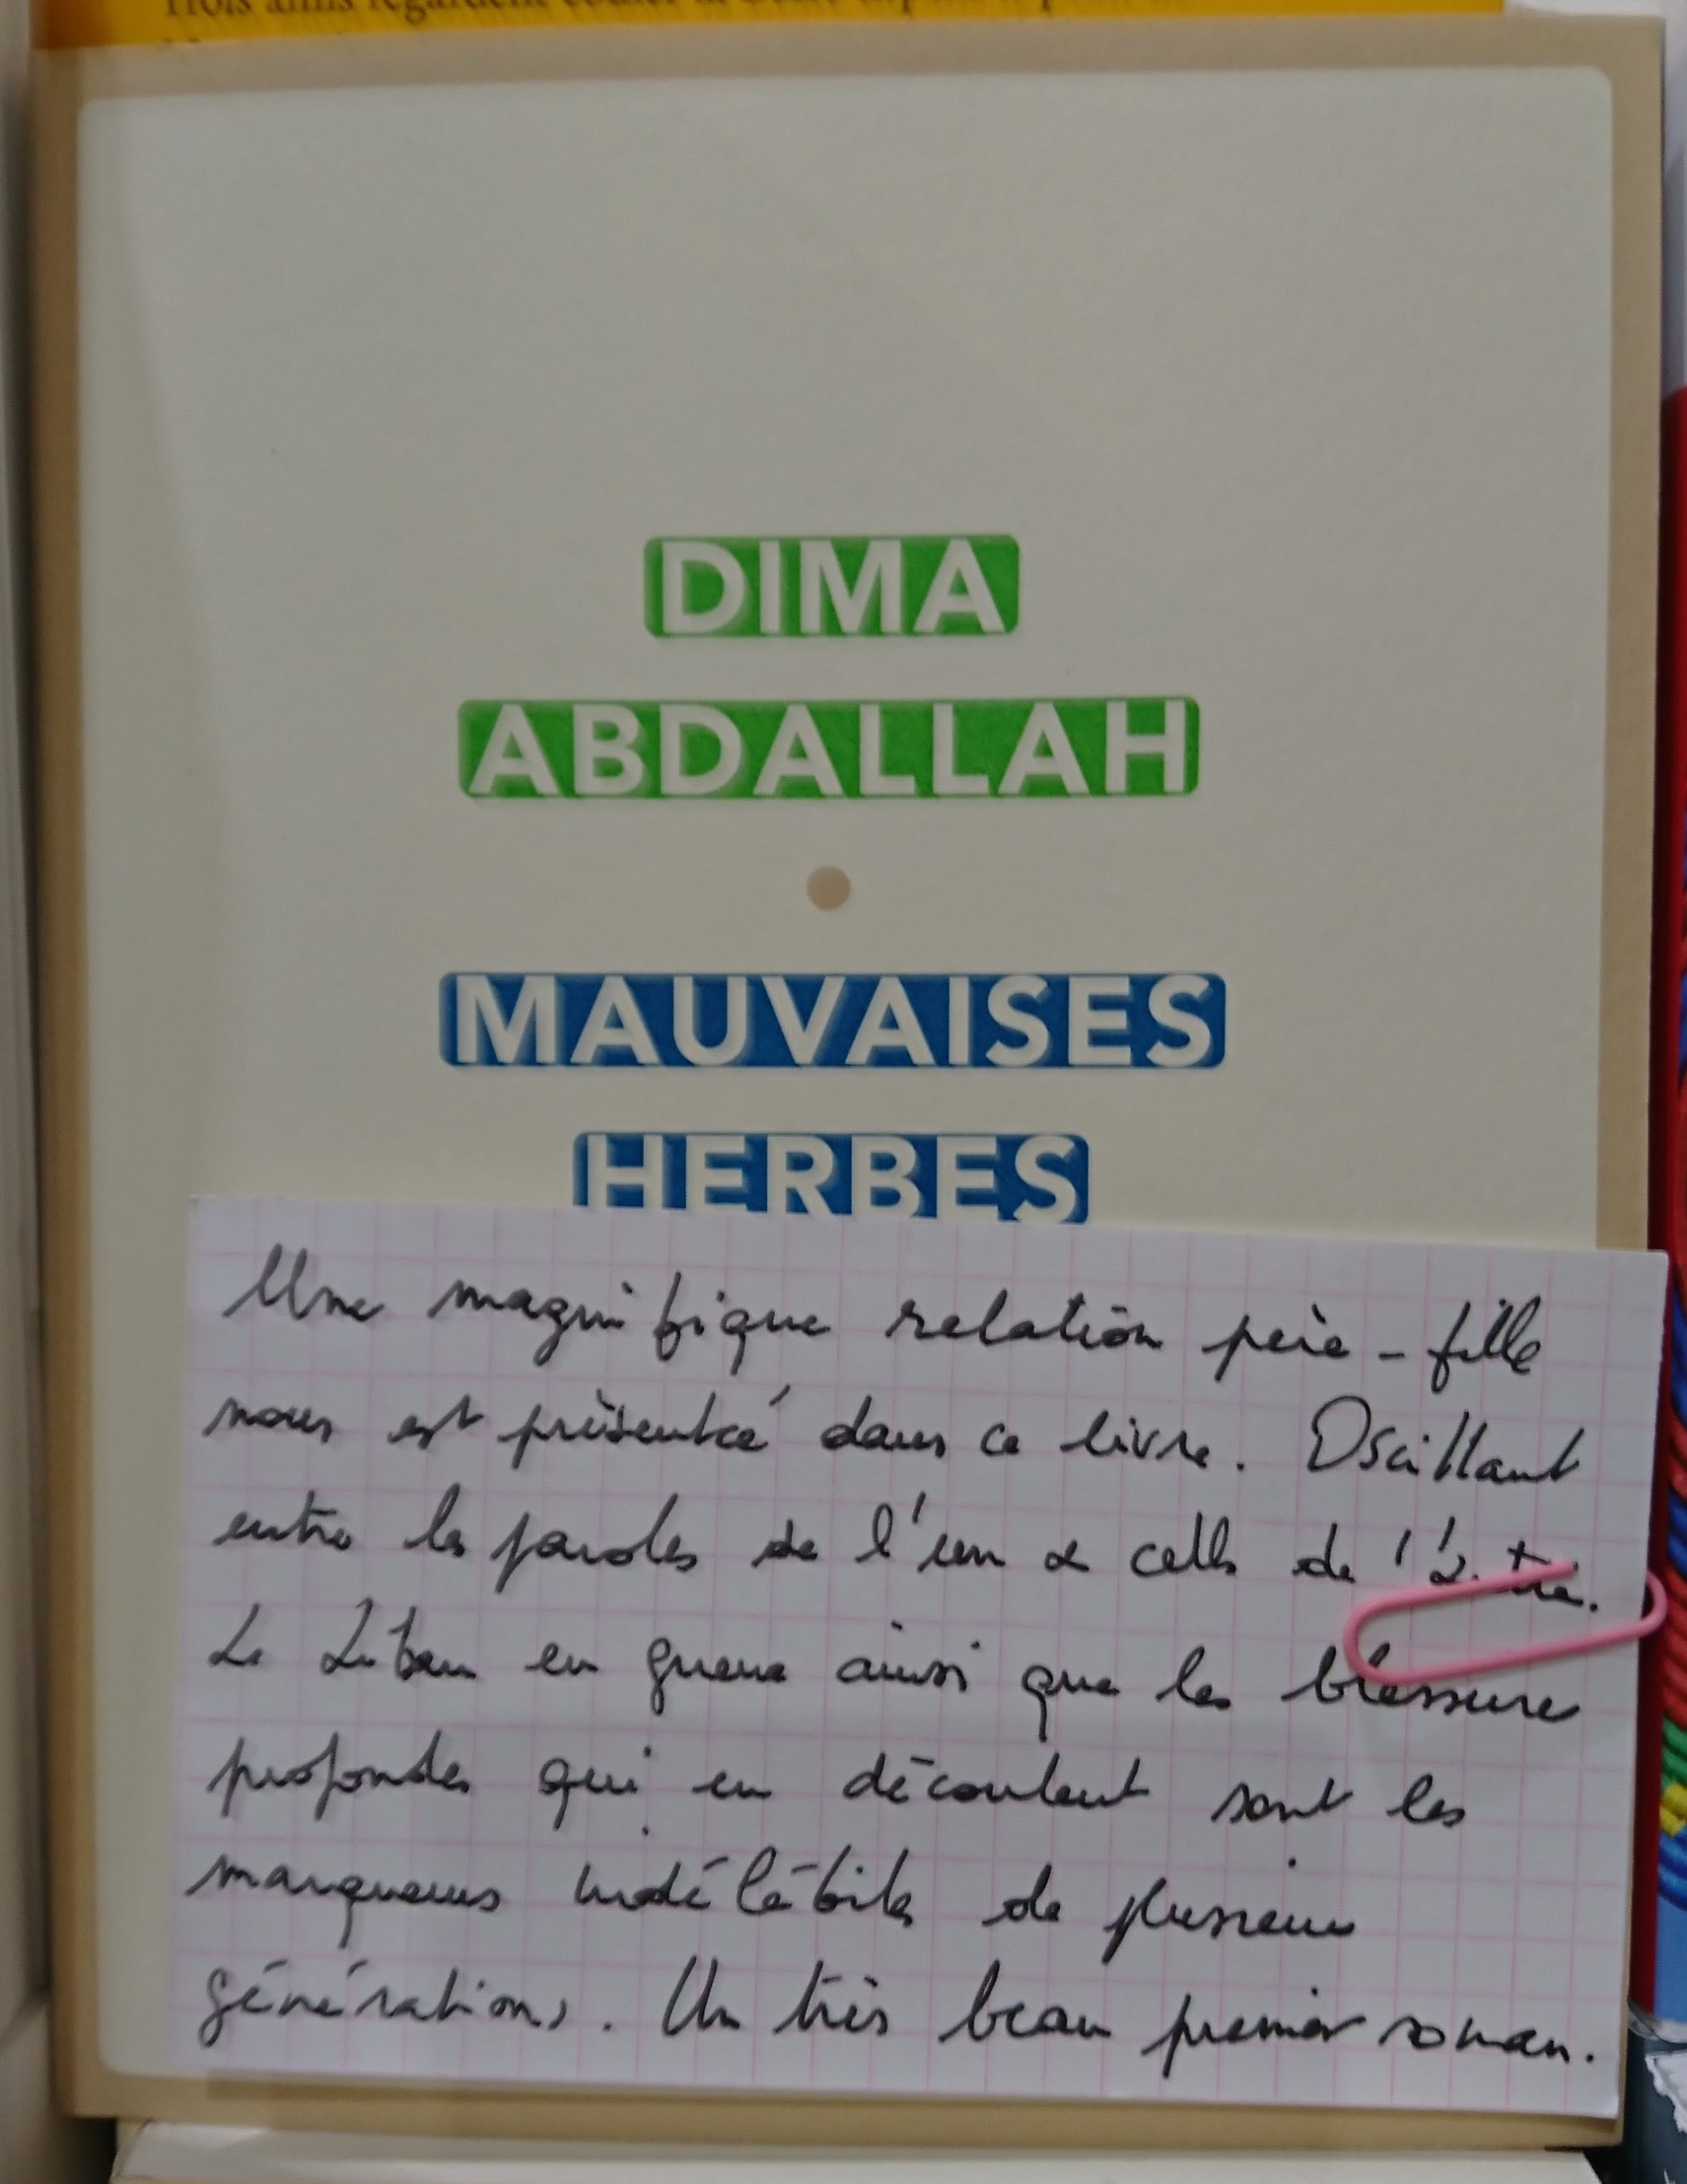 Trois amis regardent couler la Seine depuis le pont
DIMA
ABDALLAH
MAUVAISES
HERBES
Une magnifique relation père-fille
nous est présentée dans ce livre. Oscillant
entre les paroles de l'un & celles de l'autre.
Le Liban en guerre ainsi que les blessures
profondes qui en découlent sont les
marqueurs indélébiles de plusieurs
générations. Un très beau premier roman.